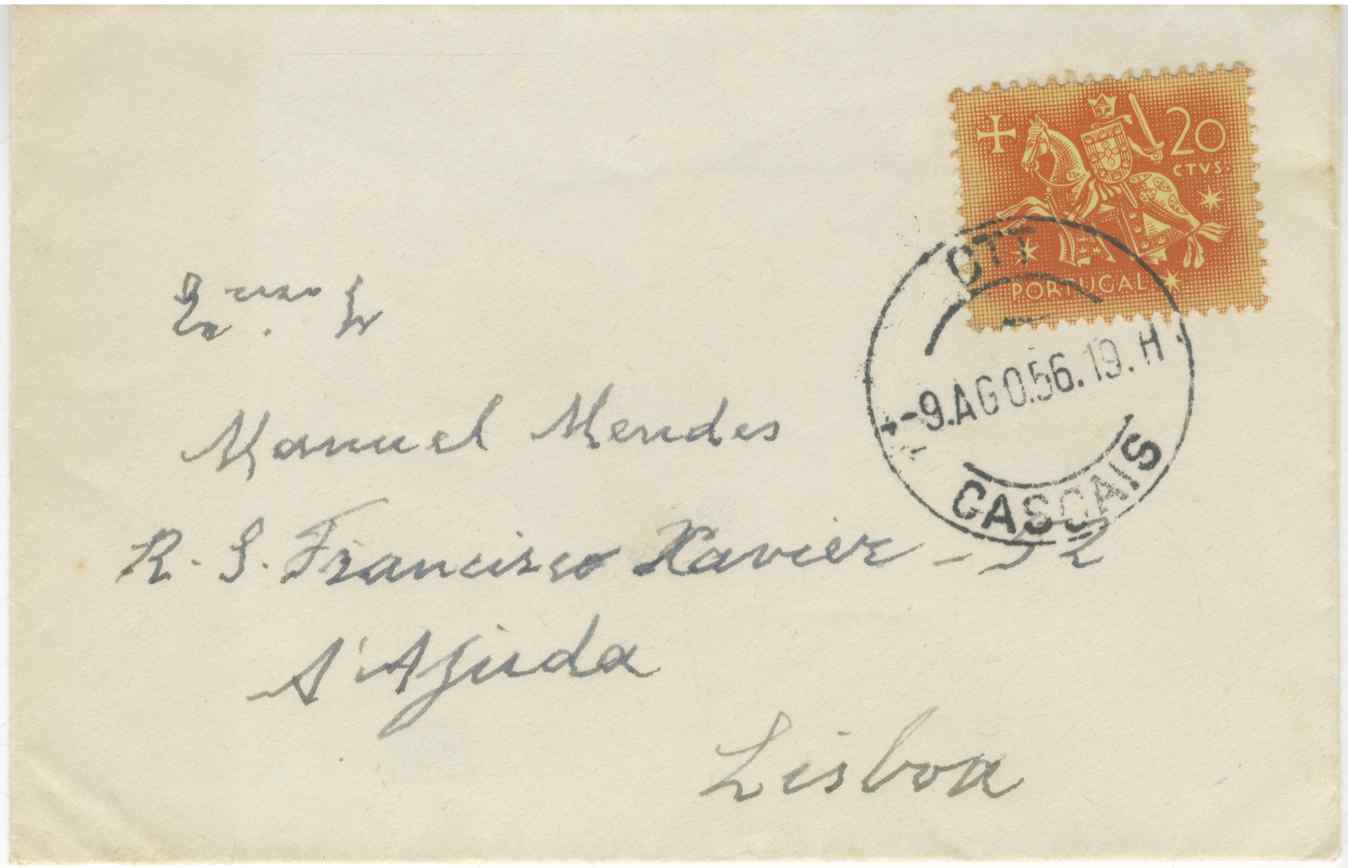 20
CTVS.
PORTUGAL
CTT
-9.AGO.56.19.H.
CASCAIS
Exmo Sr
Manuel Mendes
R. S. Francisco Xavier - 52
A'Ajuda
Lisboa